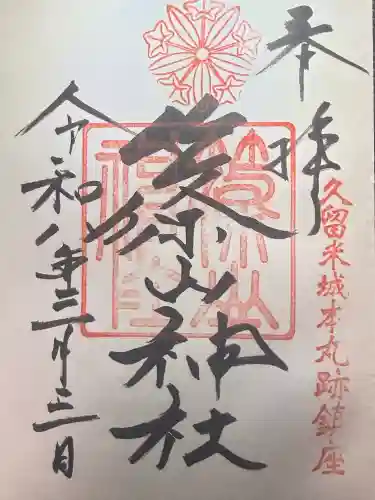 奉拝
久留米城本丸跡鎮座
篠山神社
令和八年三月三日